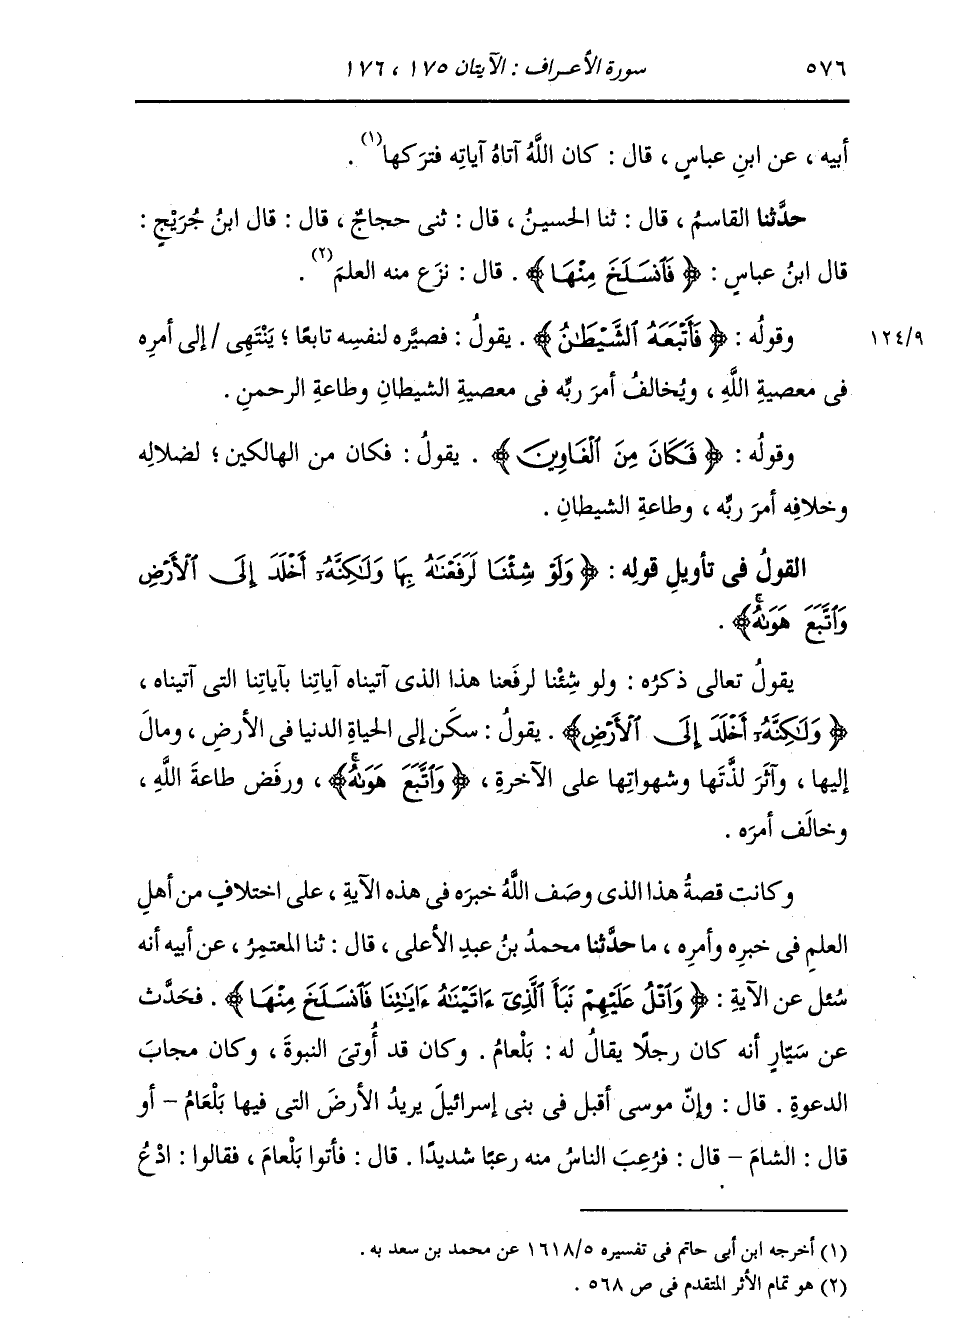 ٥٧٦ سورة الأعراف : الآيتان ١٧٥ ، ١٧٦
أبيه ، عن ابنِ عباسٍ ، قال : كان اللَّهُ آتاهُ آياتِه فترَكها(١) .
حدَّثنا القاسمُ ، قال : ثنا الحسينُ ، قال : ثنى حجاجٌ ، قال : قال ابنُ جُرَيْجٍ :
قال ابنُ عباسٍ : ﴿ فَٱنسَلَخَ مِنْهَا ﴾ . قال : نزَع منه العلمَ(٢) .
وقولُه : ﴿ فَأَتْبَعَهُ ٱلشَّيْطَٰنُ ﴾ . يقولُ : فصيَّره لنفسِه تابعًا ؛ يَنْتَهِى / إلى أمرِه
١٢٤/٩
فى معصيةِ اللَّهِ ، ويُخالفُ أمرَ ربِّه فى معصيةِ الشيطانِ وطاعةِ الرحمنِ .
وقولُه : ﴿ فَكَانَ مِنَ ٱلْغَاوِينَ ﴾ . يقولُ : فكان من الهالكين ؛ لضلالِه
وخلافِه أمرَ ربِّه ، وطاعةِ الشيطانِ .
القولُ فى تأويلِ قولِه : ﴿ وَلَوْ شِئْنَا لَرَفَعْنَٰهُ بِهَا وَلَٰكِنَّهُۥٓ أَخْلَدَ إِلَى ٱلْأَرْضِ
وَٱتَّبَعَ هَوَىٰهُۚ ﴾ .
يقولُ تعالى ذكرُه : ولو شِئْنا لرفَعنا هذا الذى آتيناه آياتِنا بآياتِنا التى آتيناه ،
﴿ وَلَٰكِنَّهُۥٓ أَخْلَدَ إِلَى ٱلْأَرْضِ ﴾ . يقولُ : سكَن إلى الحياةِ الدنيا فى الأرضِ ، ومالَ
إليها ، وآثَرَ لذَّتَها وشهواتِها على الآخرةِ ، ﴿ وَٱتَّبَعَ هَوَىٰهُۚ ﴾ ، ورفَض طاعةَ اللَّهِ ،
وخالَف أمرَه .
وكانت قصةُ هذا الذى وصَف اللَّهُ خبرَه فى هذه الآيةِ ، على اختلافٍ من أهلِ
العلمِ فى خبرِه وأمرِه ، ما حدَّثنا محمدُ بنُ عبدِ الأعلى ، قال : ثنا المعتمِرُ ، عن أبيه أنه
سُئل عن الآيةِ : ﴿ وَٱتْلُ عَلَيْهِمْ نَبَأَ ٱلَّذِىٓ ءَاتَيْنَٰهُ ءَايَٰتِنَا فَٱنسَلَخَ مِنْهَا ﴾ . فحَدَّث
عن سَيّارٍ أنه كان رجلًا يقالُ له : بَلْعامُ . وكان قد أُوتِىَ النبوةَ ، وكان مجابَ
الدعوةِ . قال : وإنّ موسى أقبل فى بنى إسرائيلَ يريدُ الأرضَ التى فيها بَلْعَامُ - أو
قال : الشامَ - قال : فرُعِبَ الناسُ منه رعبًا شديدًا . قال : فأتوا بَلْعامَ ، فقالوا : ادْعُ
(١) أخرجه ابن أبى حاتم فى تفسيره ١٦١٨/٥ عن محمد بن سعد به .
(٢) هو تمام الأثر المتقدم فى ص ٥٦٨ .